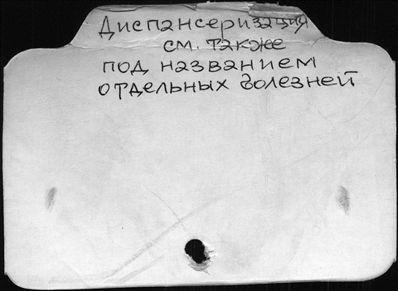 Диспансеризация
см. также
под названием
отдельных болезней